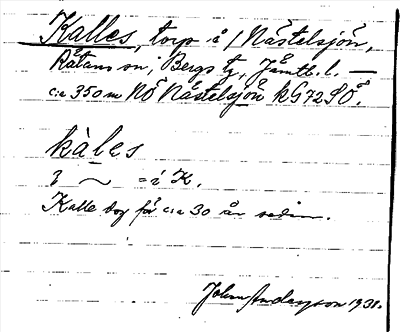 Kalles, torp å /Nästelsjön,
Råtans sn; Bergs tg, Jämtl. l. —
c:a 350 m NÖ Nästelsjön kG 72 SÖ.
kàles
3 ~ = i K.
Kalle dog för c:a 30 år sedan.
John Andersson 1938.